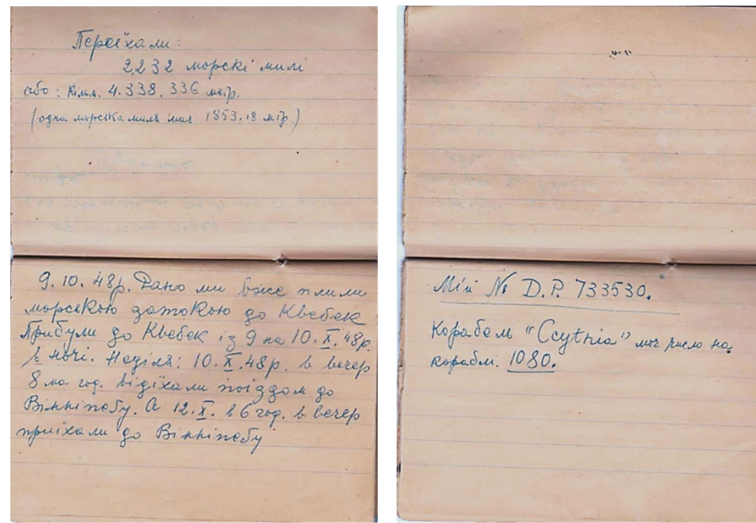 Переїхали:
2232 морскі милі
або: кілм. 4.338.336 мтр.
(одна морска миля має 1853.18 мтр.)
9.10.48р. Рано ми вже плили
морскою затокою до Квебек
Прибули до Квебек із 9 на 10.X.48р.
в ночі. Неділя: 10.X.48р. в вечер
8 ма год. відїхали поїздом до
Вінніпегу. А 12.X. в 6 год. в вечер
приїхали до Вінніпегу
Мій № D.P. 733530.
Корабель "Ccythia" моє число на
кораблі. 1080.